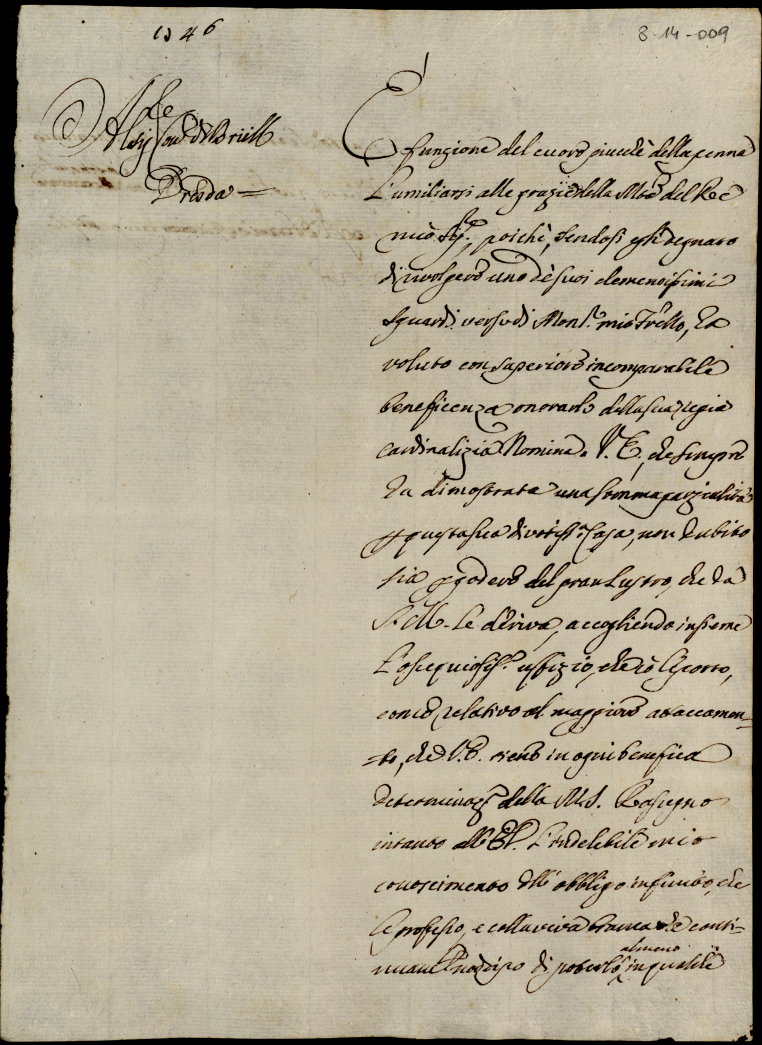 1746
8-14-009
Al Sig.r Conte di Brühl
Dresda =
È funzione del cuore più che della penna
l'umiliarsi alle grazie della M.tà del Re
mio Sig.re, poichè, sendosi egli degnato
di rivolgere uno de' suoi clementissimi
sguardi verso di Mons.r mio Frello, ha
voluto con superiore incomparabile
beneficenza onorarlo della sua regia
cardinalizia Nomina. V. E., che sempre
ha dimostrata una somma parzialità
p questa sua divotiss.a Casa, non dubito
sia p godere del gran lustro, che da
S. M. le deriva, accogliendo insieme
l'ossequiosiss.o uffizio, che io Le porto,
come relativo al maggiore attaccamen-
-to, che V. E. tiene in ogni benefica
determinaz.e della M. S. Rassegno
intanto all' E. V. l'indelebile mio
conoscimento dell' obbligo infinito, che
Le professo, e colla viva brama di conti-
nuare di poterlo almeno in qualche